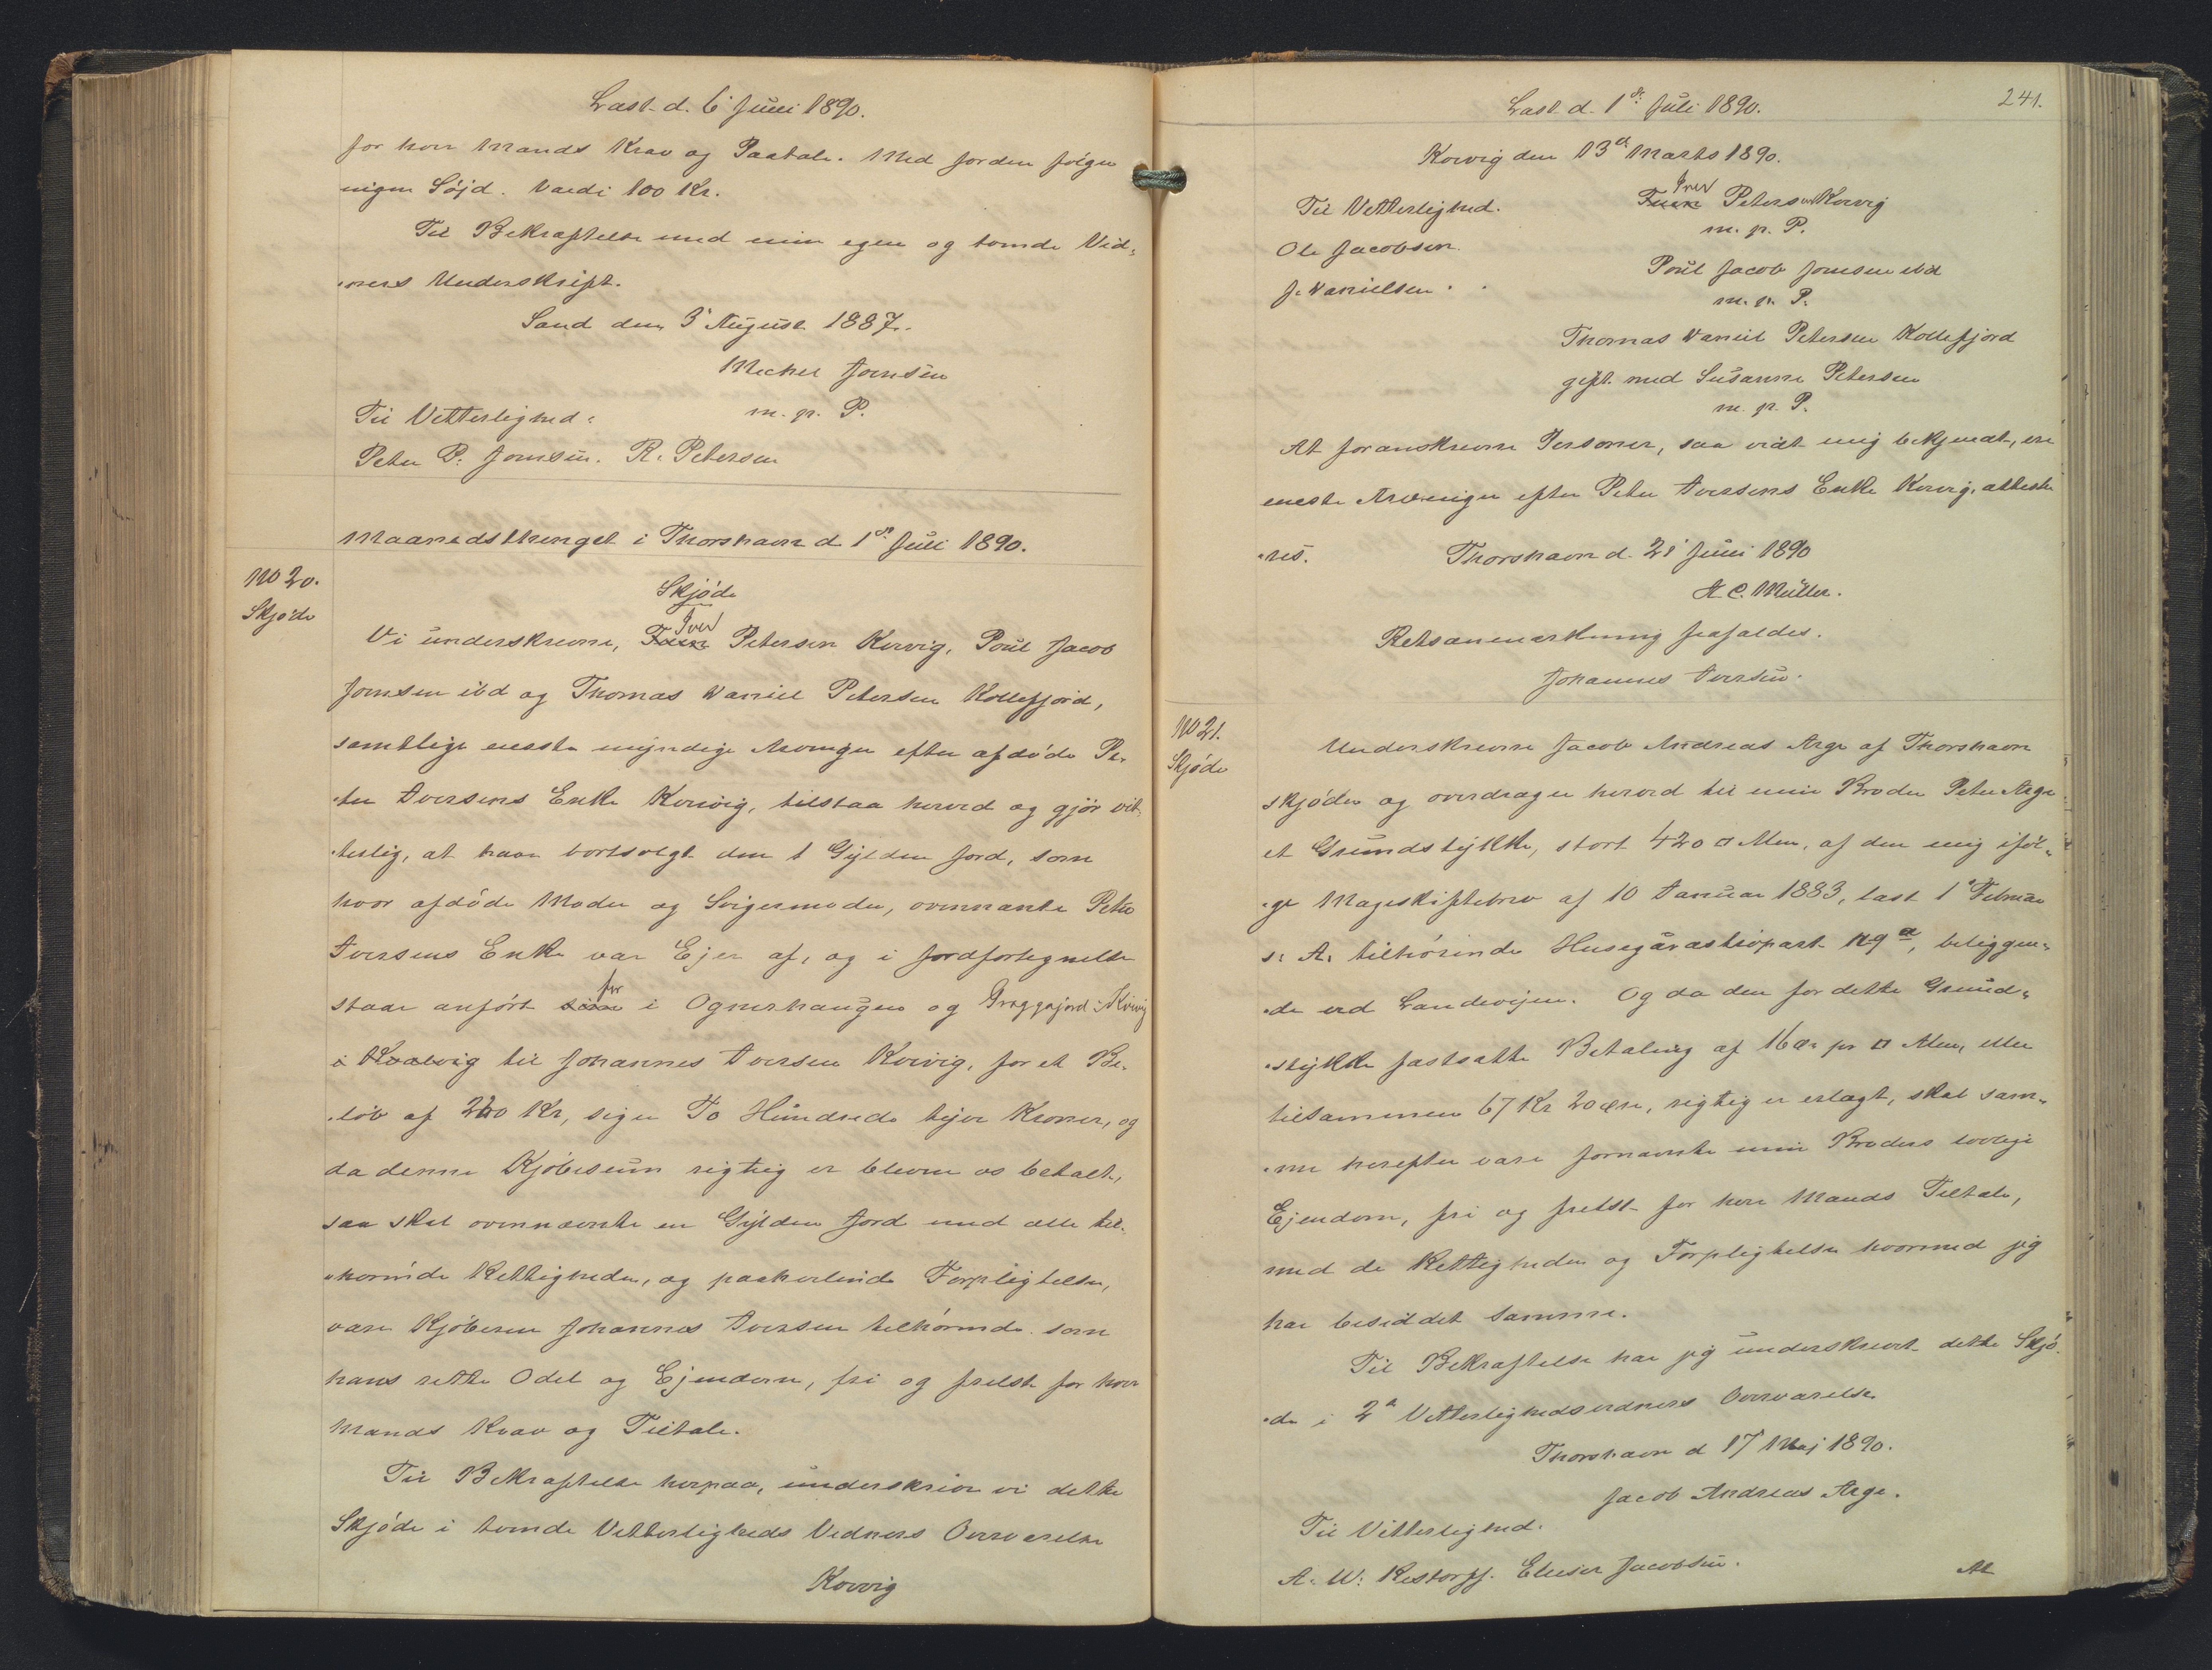 Læst d. 6' Juni 1890.
for hver Mands Krav og Paatale. Med Jorden følger
ingen Søjd. Værdi 100 Kr.
Til Bekræftelse med min egen og tvende Vid-
-ners Underskrift.
Sand den 3' August 1887.
Michel Joensen
m. p. P.
Til Vitterlighed:
Peter P. Joensen. R. Petersen
Maanedsthinget i Thorshavn d 1ste Juli 1890.
No 20.
Skjøde
Skjøde
Vi underskrevne, Iver Petersen Kvivig, Poul Jacob
Joensen ibd og Thomas Daniel Petersen Kollefjord,
samtlige eneste myndige Arvinger efter afdøde Pe-
-ter Iversens Enke Kvivig, tilstaa herved og gjør vit-
-terlig, at have bortsolgt den 1 Gylden Jord, som
vor afdøde Moder og Svigermoder, ovennævnte Peter
Iversens Enke var Ejer af, og i Jordfortegnelse
staar anført som for i Ognerhaugen og Gryggajord i Kvivig
i Kvalvig til Johannes Iversen Kvivig, for et Be-
-løb af 210 Kr, siger To Hundrede tijer Kroner, og
da denne Kjøbesum rigtig er bleven os betalt,
saa skal ovennævnte en Gylden Jord med alle til-
-hørende Rettigheder, og paahvilende Forpligtelser,
være Kjøberen Johannes Iversen tilhørende som
hans rette Odel og Ejendom, fri og frelst for hver
Mands Krav og Tiltale.
Til Bekræftelse herpaa, underskriver vi dette
Skjøde i tvende Vitterligheds Vidners Overværelse
Kvivig
Læst d. 1ste Juli 1890.
241.
Kvivig den 13de Marts 1890.
Til Vitterlighed.
Iver Petersen Kvivig
m. p. P.
Ole Jacobsen.
Poul Jacob Joensen ibd
J. Danielsen.
m. p. P.
Thomas Daniel Petersen Kollefjord
gift med Susanne Petersen
m. p. P.
At foranskrevne Personer, saa vidt mig bekjendt, ere
eneste Arvinger efter Peter Iversens Enke Kvivig, atteste-
-res.
Thorshavn d. 21' Juni 1890
H. C. Müller.
Retsanmærkning frafaldes.
Johannes Iversen.
No 21.
Skjøde
Underskrevne Jacob Andreas Arge af Thorshavn
skjøder og overdrager herved til min Broder Peter Arge
et Grundstykke, stort 420 □ Alen, af den mig iføl-
-ge Mageskiftebrev af 10 Januar 1883, læst 1' Februar
s. A. tilhørende Husegaardstrøpart No 9a, beliggen-
-de ved Landevejen. Og da den for dette Grund-
-stykke fastsatte Betaling af 16 Øre pr □ Alen, eller
tilsammen 67 Kr 20 Øre, rigtig er erlagt, skal sam-
-me herefter være fornævnte min Broders lovlige
Ejendom, fri og frelst for hver Mands Tiltale,
med de Rettigheder og Forpligtelser hvormed jeg
har besiddet samme.
Til Bekræftelse har jeg underskrevet dette Skjø-
-de i 2de Vitterlighedsvidners Overværelse
Thorshavn d 17' Maj 1890.
Jacob Andreas Arge.
Til Vitterlighed.
A. W. Restorff. Elieser Jacobsen.
At